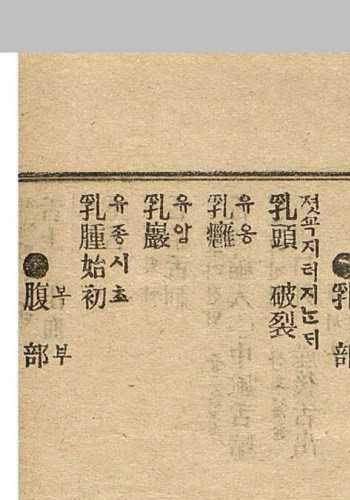 ●乳部
乳頭破裂
젓곡지터지는디
乳癰
유옹
乳巖
유암
乳腫始初
유종시초
●腹部
복부